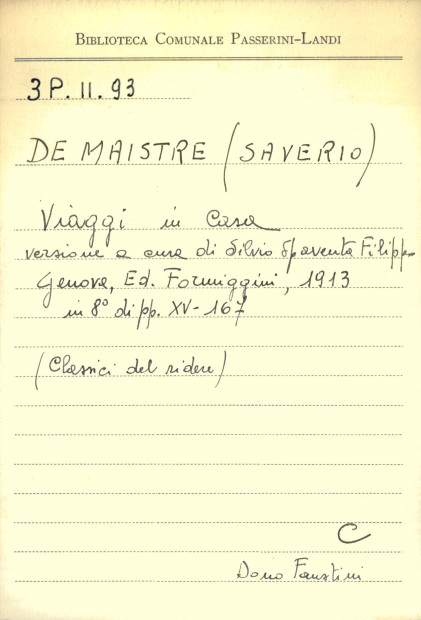 BIBLIOTECA COMUNALE PASSERINI-LANDI
3P. II. 93
DE MAISTRE (SAVERIO)
Viaggi in Casa
versione a cura di Silvio Spaventa Filippi
Genova, Ed. Formiggini, 1913
in 8° di pp. XV-167
(Classici del ridere)
C
Dono Faustini